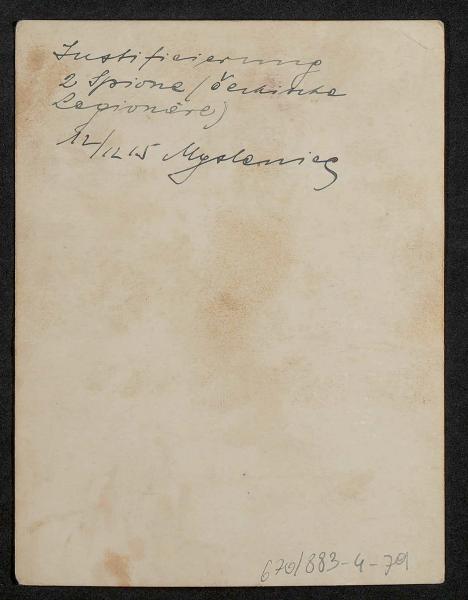 Justificierung
2 Spione (čechische
Legionäre)
12/12 15 Myslenice
670/883-4-70